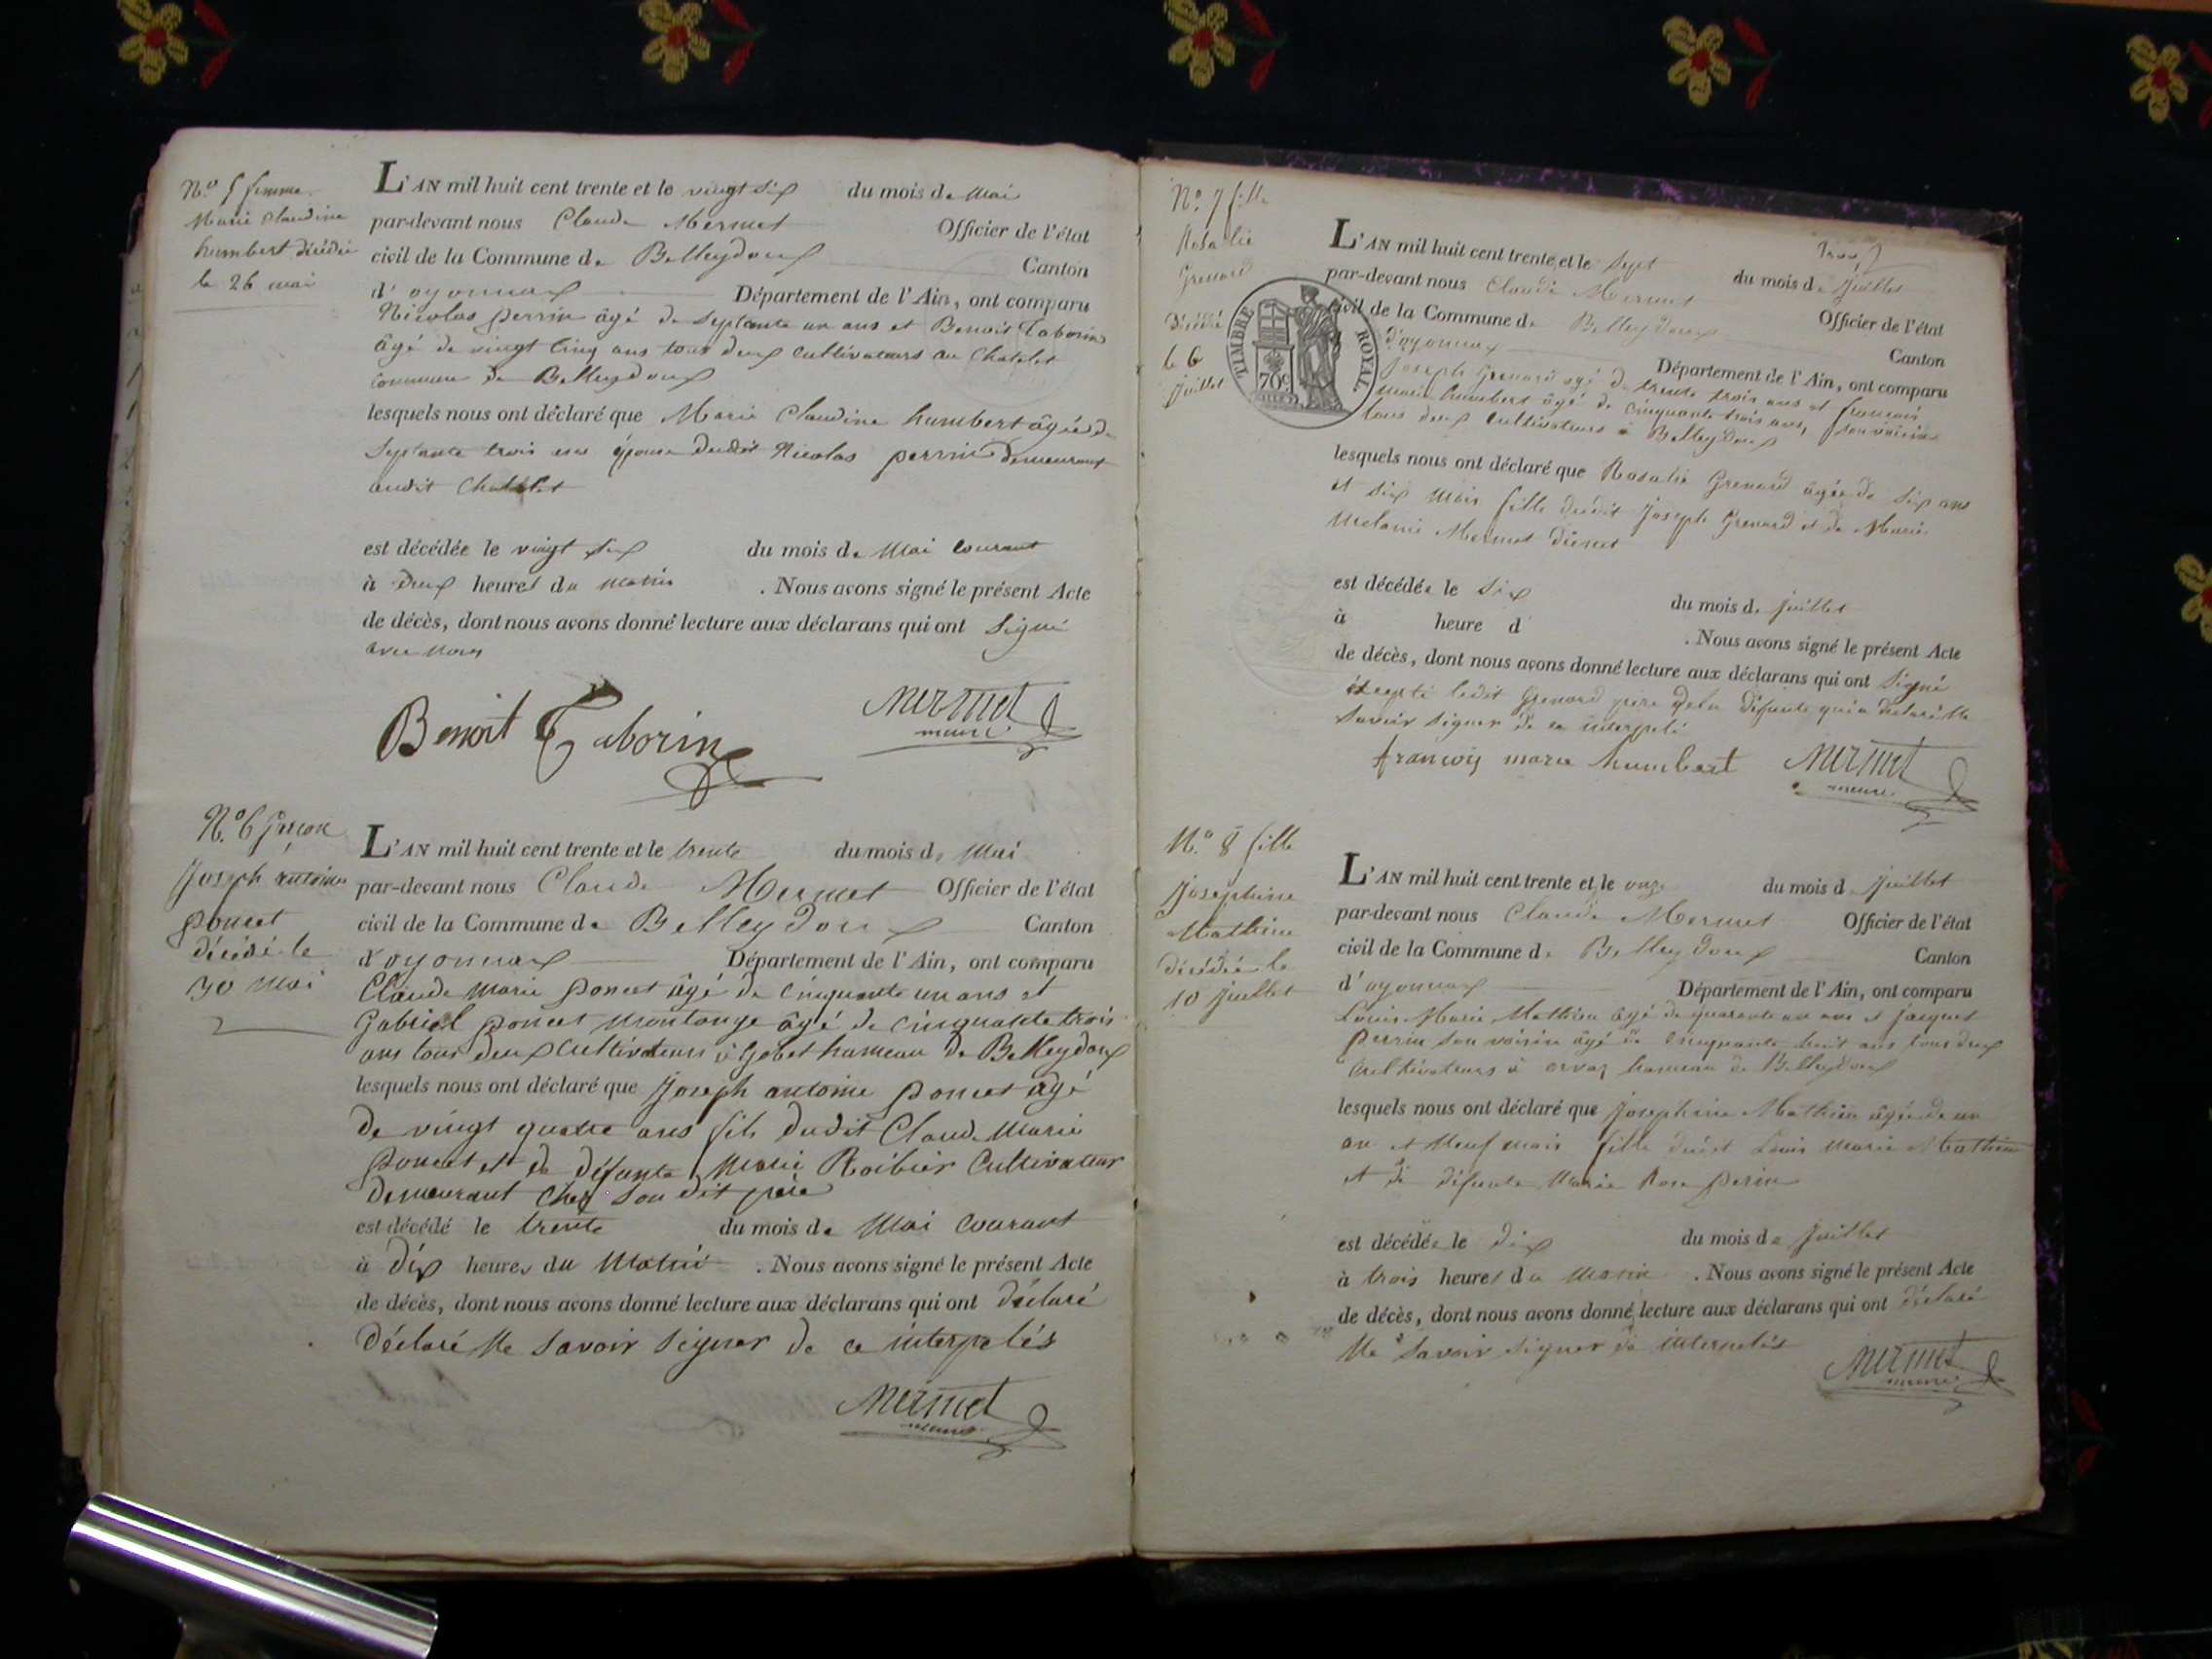 N.º 5 femme
Marie Claudine
humbert décédée
le 26 mai
L'AN mil huit cent trente et le vingt six du mois de Mai
par-devant nous Claude Mermet Officier de l'état
civil de la Commune de Belleydoux Canton
d'oyonnax Département de l'Ain, ont comparu
Nicolas perrin âgé de septante un ans et Benoit Taborin
âgé de vingt cinq ans tous deux cultivateurs au Chatelet
commune de Belleydoux
lesquels nous ont déclaré que Marie Claudine humbert âgée de
septante trois ans épouse dudit Nicolas perrin demeurant
audit Chatelet
est décédée le vingt six du mois de Mai courant
à deux heures du matin . Nous avons signé le présent Acte
de décès, dont nous avons donné lecture aux déclarans qui ont signé
avec nous
Benoit Taborin
Mermet
maire
N.º 6 garçon
Joseph antoine
poncet
décédé le
30 Mai
L'AN mil huit cent trente et le trente du mois de Mai
par-devant nous Claude Mermet Officier de l'état
civil de la Commune de Belleydoux Canton
d'oyonnax Département de l'Ain, ont comparu
Claude Marie poncet âgé de cinquante un ans et
Gabriel poncet montange âgé de cinquante trois
ans tous deux cultivateurs à Gobet hameau de Belleydoux
lesquels nous ont déclaré que Joseph antoine poncet âgé
de vingt quatre ans fils dudit Claude Marie
poncet et de défunte Marie Roibier Cultivateur
demeurant chez son dit père
est décédé le trente du mois de Mai courant
à dix heures du Matin . Nous avons signé le présent Acte
de décès, dont nous avons donné lecture aux déclarans qui ont déclaré
déclaré Ne savoir signer de ce interpelés
Mermet
maire
N.º 7 fille
Rosalie
Grenard
Décédée
le 6
Juillet
TIMBRE ROYAL
70c
L'AN mil huit cent trente et le sept du mois de Juillet
par-devant nous Claude Mermet Officier de l'état
civil de la Commune de Belleydoux Canton
d'oyonnax Département de l'Ain, ont comparu
Joseph Grenard âgé de trente trois ans et françois
marie humbert âgé de cinquante trois ans, son voisin
tous deux cultivateurs à Belleydoux
lesquels nous ont déclaré que Rosalie Grenard âgée de six ans
et six mois fille dudit Joseph Grenard et de Marie
Melanie Mermet
est décédée le six du mois de juillet
à heure d . Nous avons signé le présent Acte
de décès, dont nous avons donné lecture aux déclarans qui ont signé
excepté ledit Grenard père de la défunte qui a déclaré Ne
savoir signer de ce interpelé
françois marie humbert
Mermet
maire
N.º 8 fille
Josephine
Mathieu
décédée le
10 Juillet
L'AN mil huit cent trente et le onze du mois de Juillet
par-devant nous Claude Mermet Officier de l'état
civil de la Commune de Belleydoux Canton
d'oyonnax Département de l'Ain, ont comparu
Louis Marie Mathieu âgé de quarante un ans et jacques
perrin son voisin âgé de cinquante huit ans tous deux
cultivateurs à orvaz hameau de Belleydoux
lesquels nous ont déclaré que Josephine Mathieu âgée de un
an et Neuf mois fille dudit Louis Marie Mathieu
et de défunte Marie Rose perrin
est décédée le dix du mois de Juillet
à trois heures du Matin . Nous avons signé le présent Acte
de décès, dont nous avons donné lecture aux déclarans qui ont déclaré
Ne savoir signer de interpelés
Mermet
maire